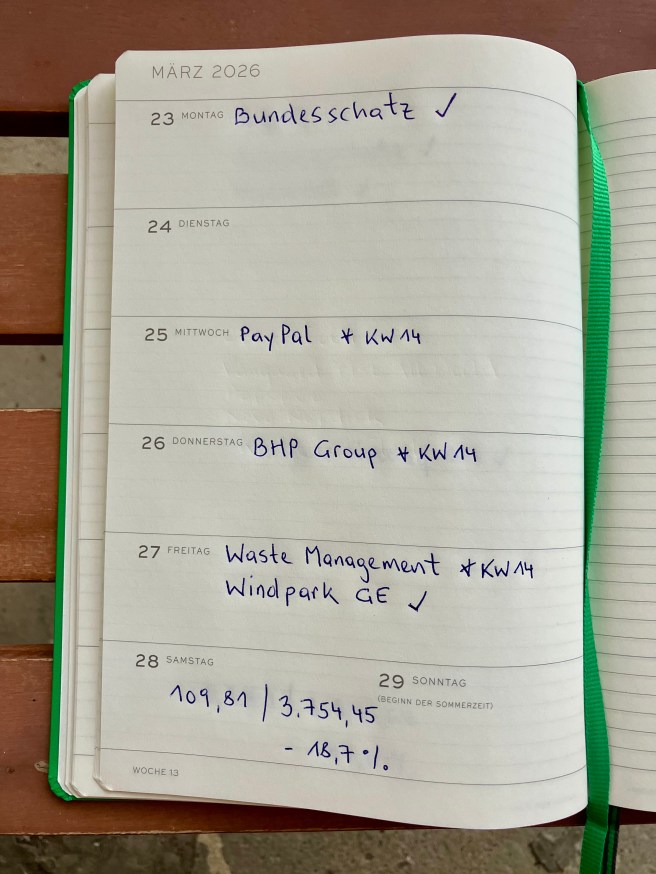 MÄRZ 2026
23 MONTAG Bundesschatz ✓
24 DIENSTAG
25 MITTWOCH PayPal * KW 14
26 DONNERSTAG BHP Group * KW 14
27 FREITAG Waste Management * KW 14
Windpark GE ✓
28 SAMSTAG
109,81 | 3.754,45
- 18,7 %.
29 SONNTAG
(BEGINN DER SOMMERZEIT)
WOCHE 13